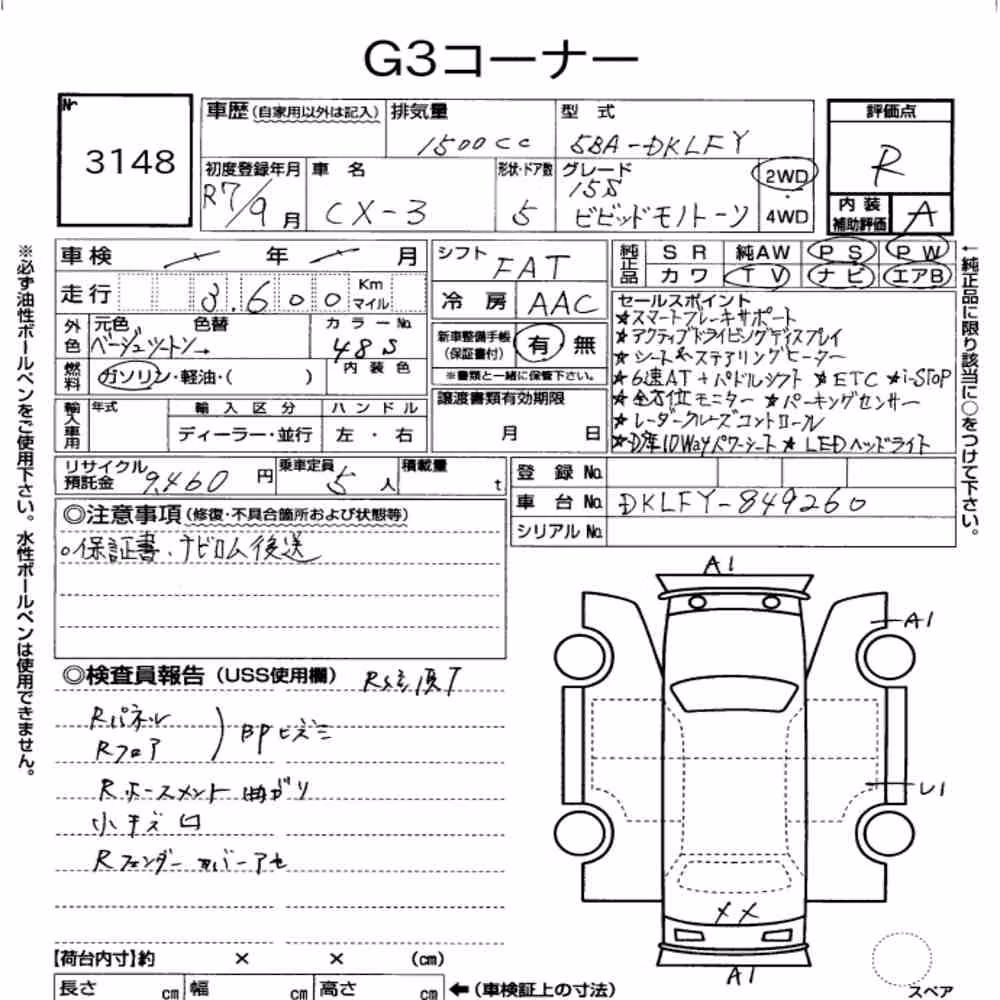 G3コーナー
№
3148
車歴(自家用以外は記入)
排気量
1500cc
型 式
5BA-DKLFY
評価点
R
初度登録年月
R7/9月
車 名
CX-3
形状・ドア数
5
グレード
15S
ビビッドモノトーン
2WD
4WD
内装補助評価
A
車検 年 月
シフト
FAT
純正品
SR 純AW PS PW
カワ TV ナビ エアB
走行
3,600
Km
マイル
冷房
AAC
外色
元色 色替
ベージュツートン→
カラーNo.
48S
内装色
新車整備手帳
(保証書付)
有 無
※書類と一緒に保管下さい。
燃料
ガソリン・軽油・( )
セールスポイント
★スマートブレーキサポート
★アクティブドライビングディスプレイ
★シート&ステアリングヒーター
★6速AT+パドルシフト ★ETC ★i-STOP
★全方位モニター ★パーキングセンサー
★レーダークルーズコントロール
★D席10Wayパワーシート ★LEDヘッドライト
輸入車用
年式
輸入区分
ハンドル
ディーラー・並行
左・右
譲渡書類有効期限
月 日
リサイクル預託金
9,460円
乗車定員
5人
積載量
t
登録No.
車台No.
DKLFY-849260
シリアルNo.
◎注意事項(修復・不具合箇所および状態等)
○保証書、ナビロム後送
◎検査員報告(USS使用欄)
Rパネル
Rフロア
BPヒズミ
Rホースメント曲がり
小キズ凹
Rフェンダーカバーアセ
A1
A1
U1
XX
A1
スペア
【荷台内寸】約 × × (cm)
長さ cm 幅 cm 高さ cm
←(車検証上の寸法)
※必ず油性ボールペンをご使用下さい。水性ボールペンは使用できません。
←純正品に限り該当に○をつけて下さい。